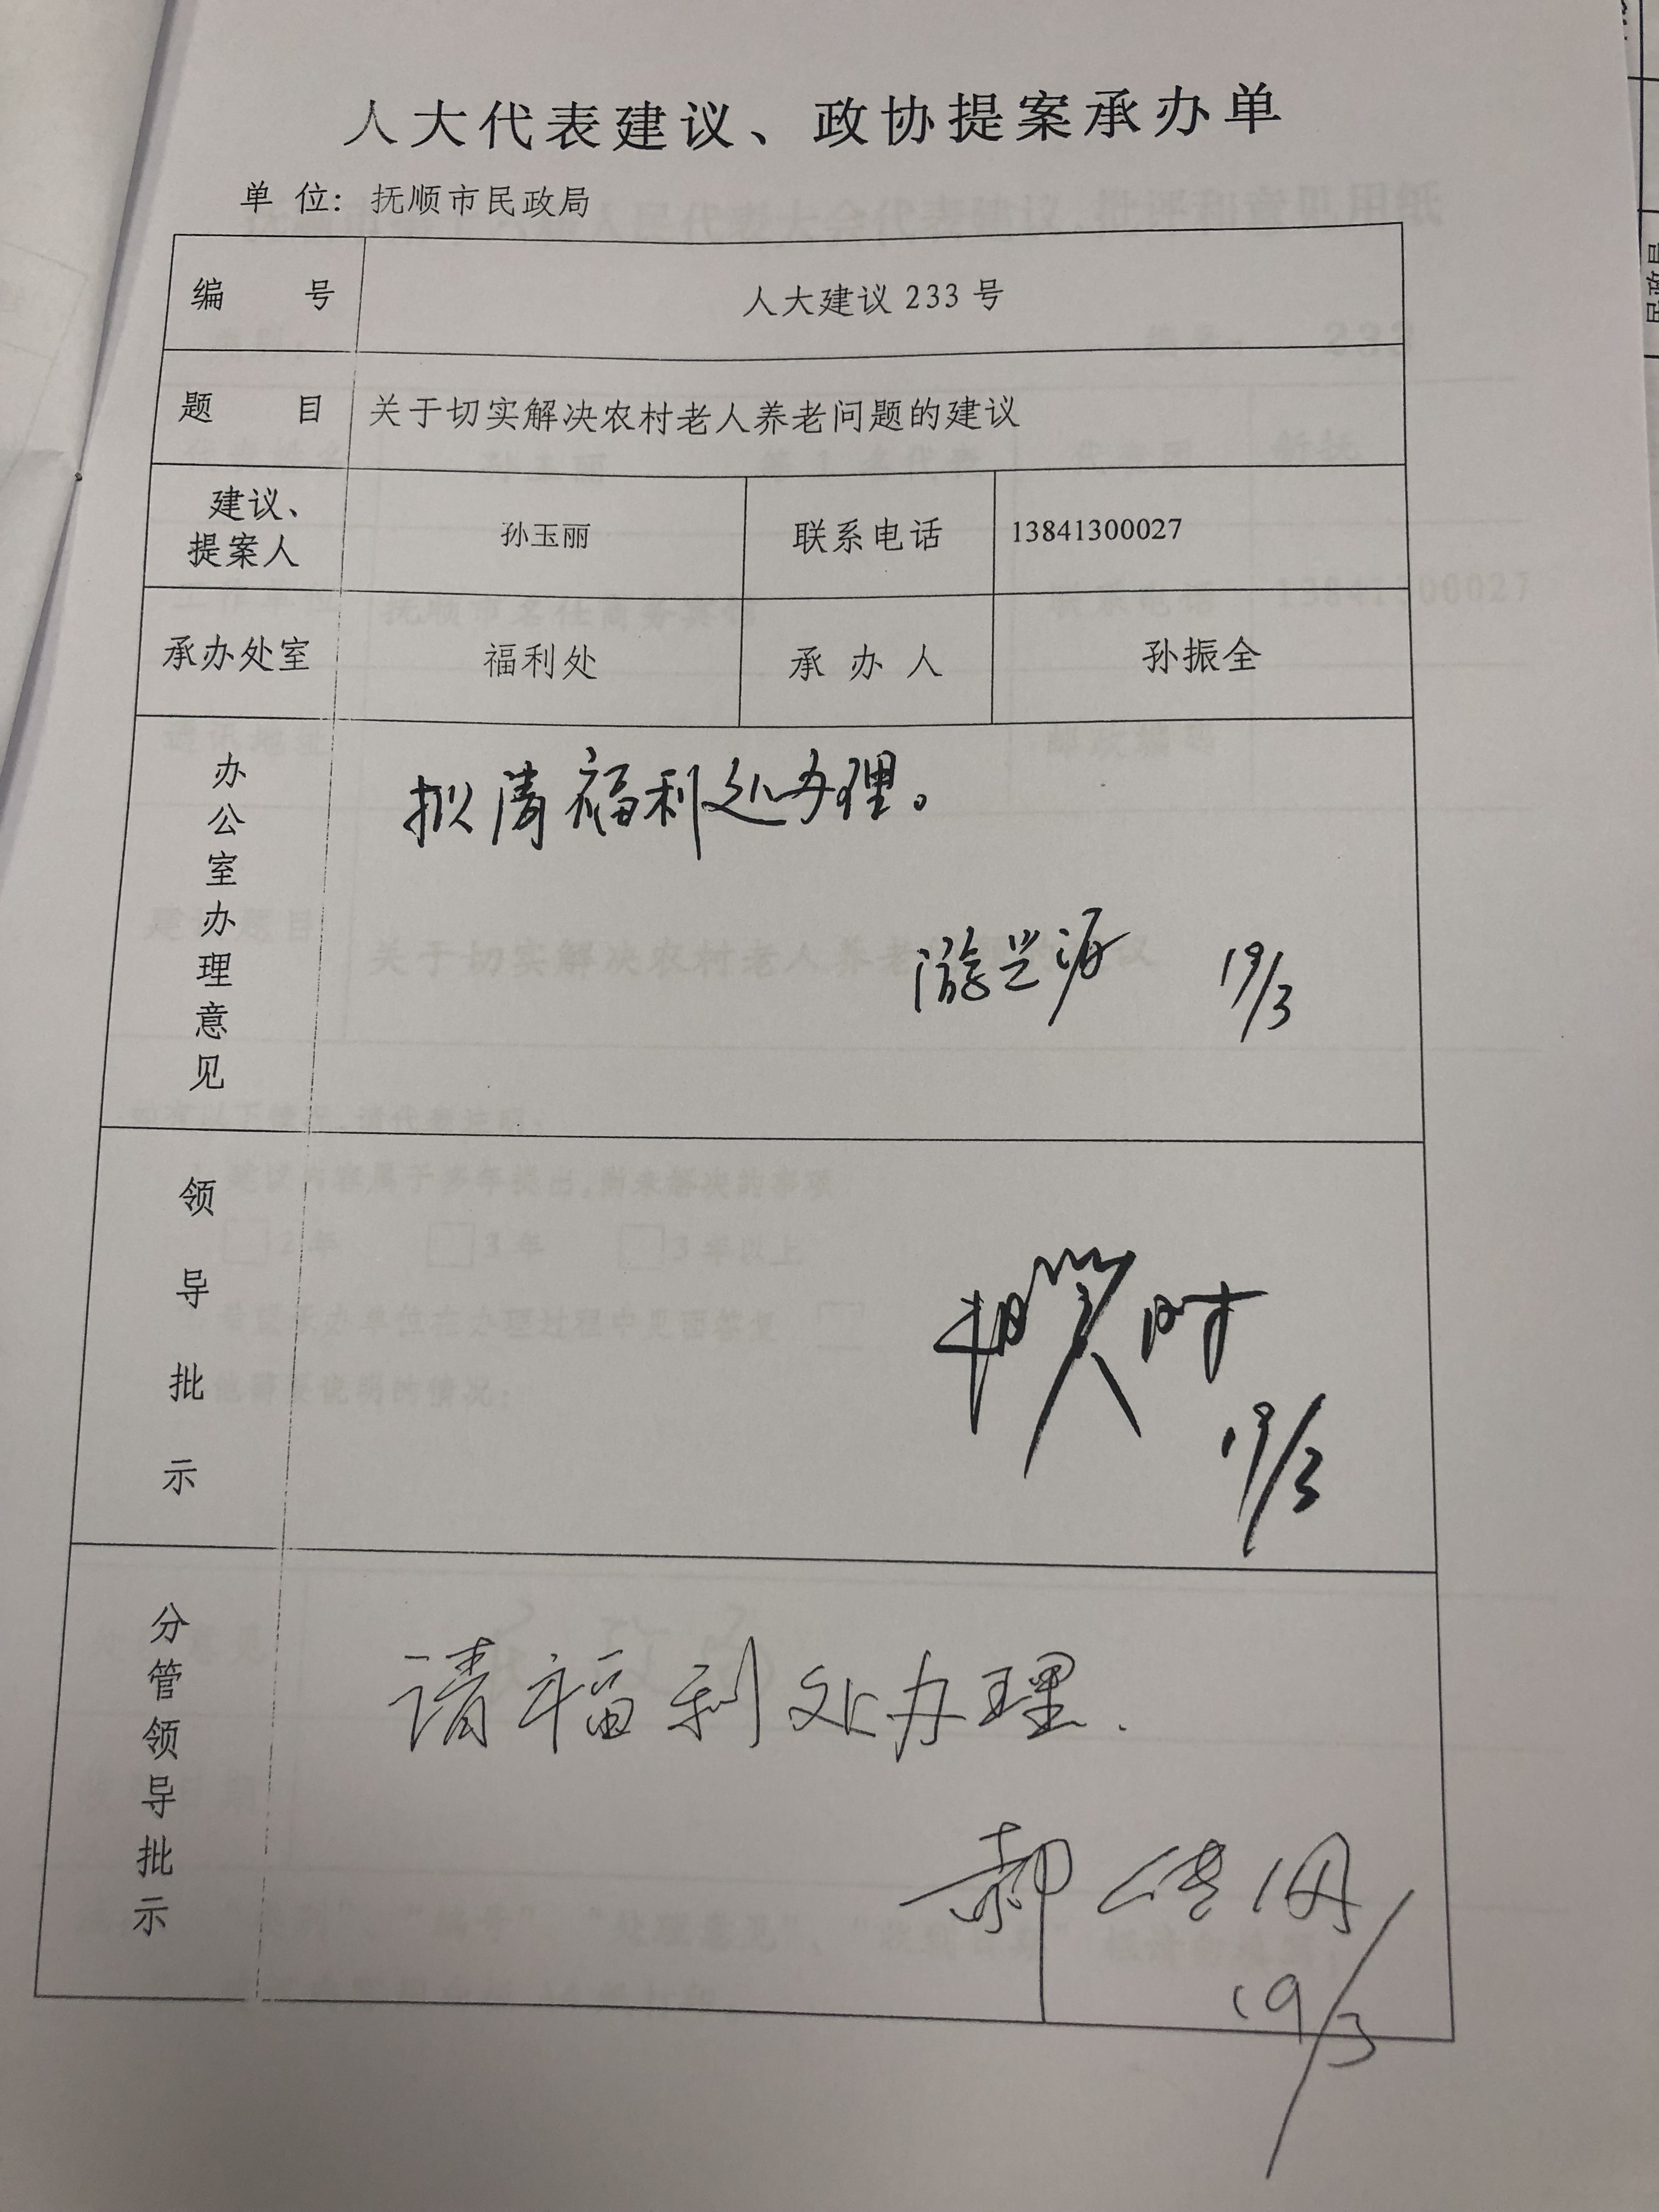 人大代表建议、政协提案承办单
单 位：抚顺市民政局
编 号 人大建议 233 号
题 目 关于切实解决农村老人养老问题的建议
建议、提案人 孙玉丽 联系电话 13841300027
承办处室 福利处 承 办 人 孙振全
办公室办理意见
拟请福利处办理。
19/3
领导批示
19/3
分管领导批示
请福利处办理.
19/3